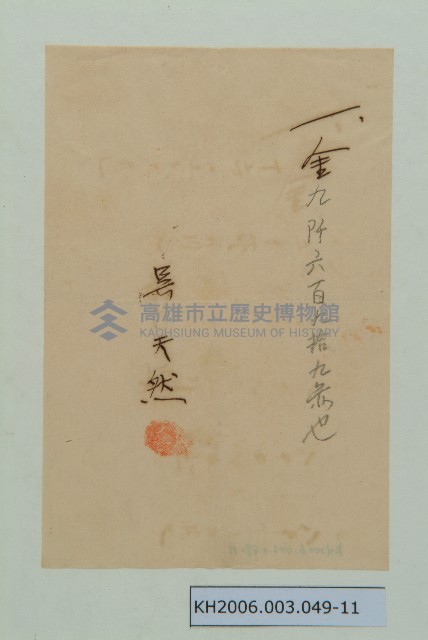 一、金九阡六百九拾九圓也
吳天然
高雄市立歷史博物館
KAOHSIUNG MUSEUM OF HISTORY
KH2006.003.049-11